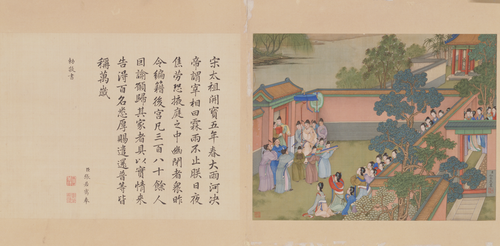 宋太祖開寶五年春大雨河決
帝謂宰相曰霖雨不止朕日夜
焦勞恐掖庭之中幽閉者衆昨
令編籍後宮凡三百八十餘人
因諭願歸其家者具以實情來
告得百名悉厚賜遣還普等皆
稱萬歲
勅敬書